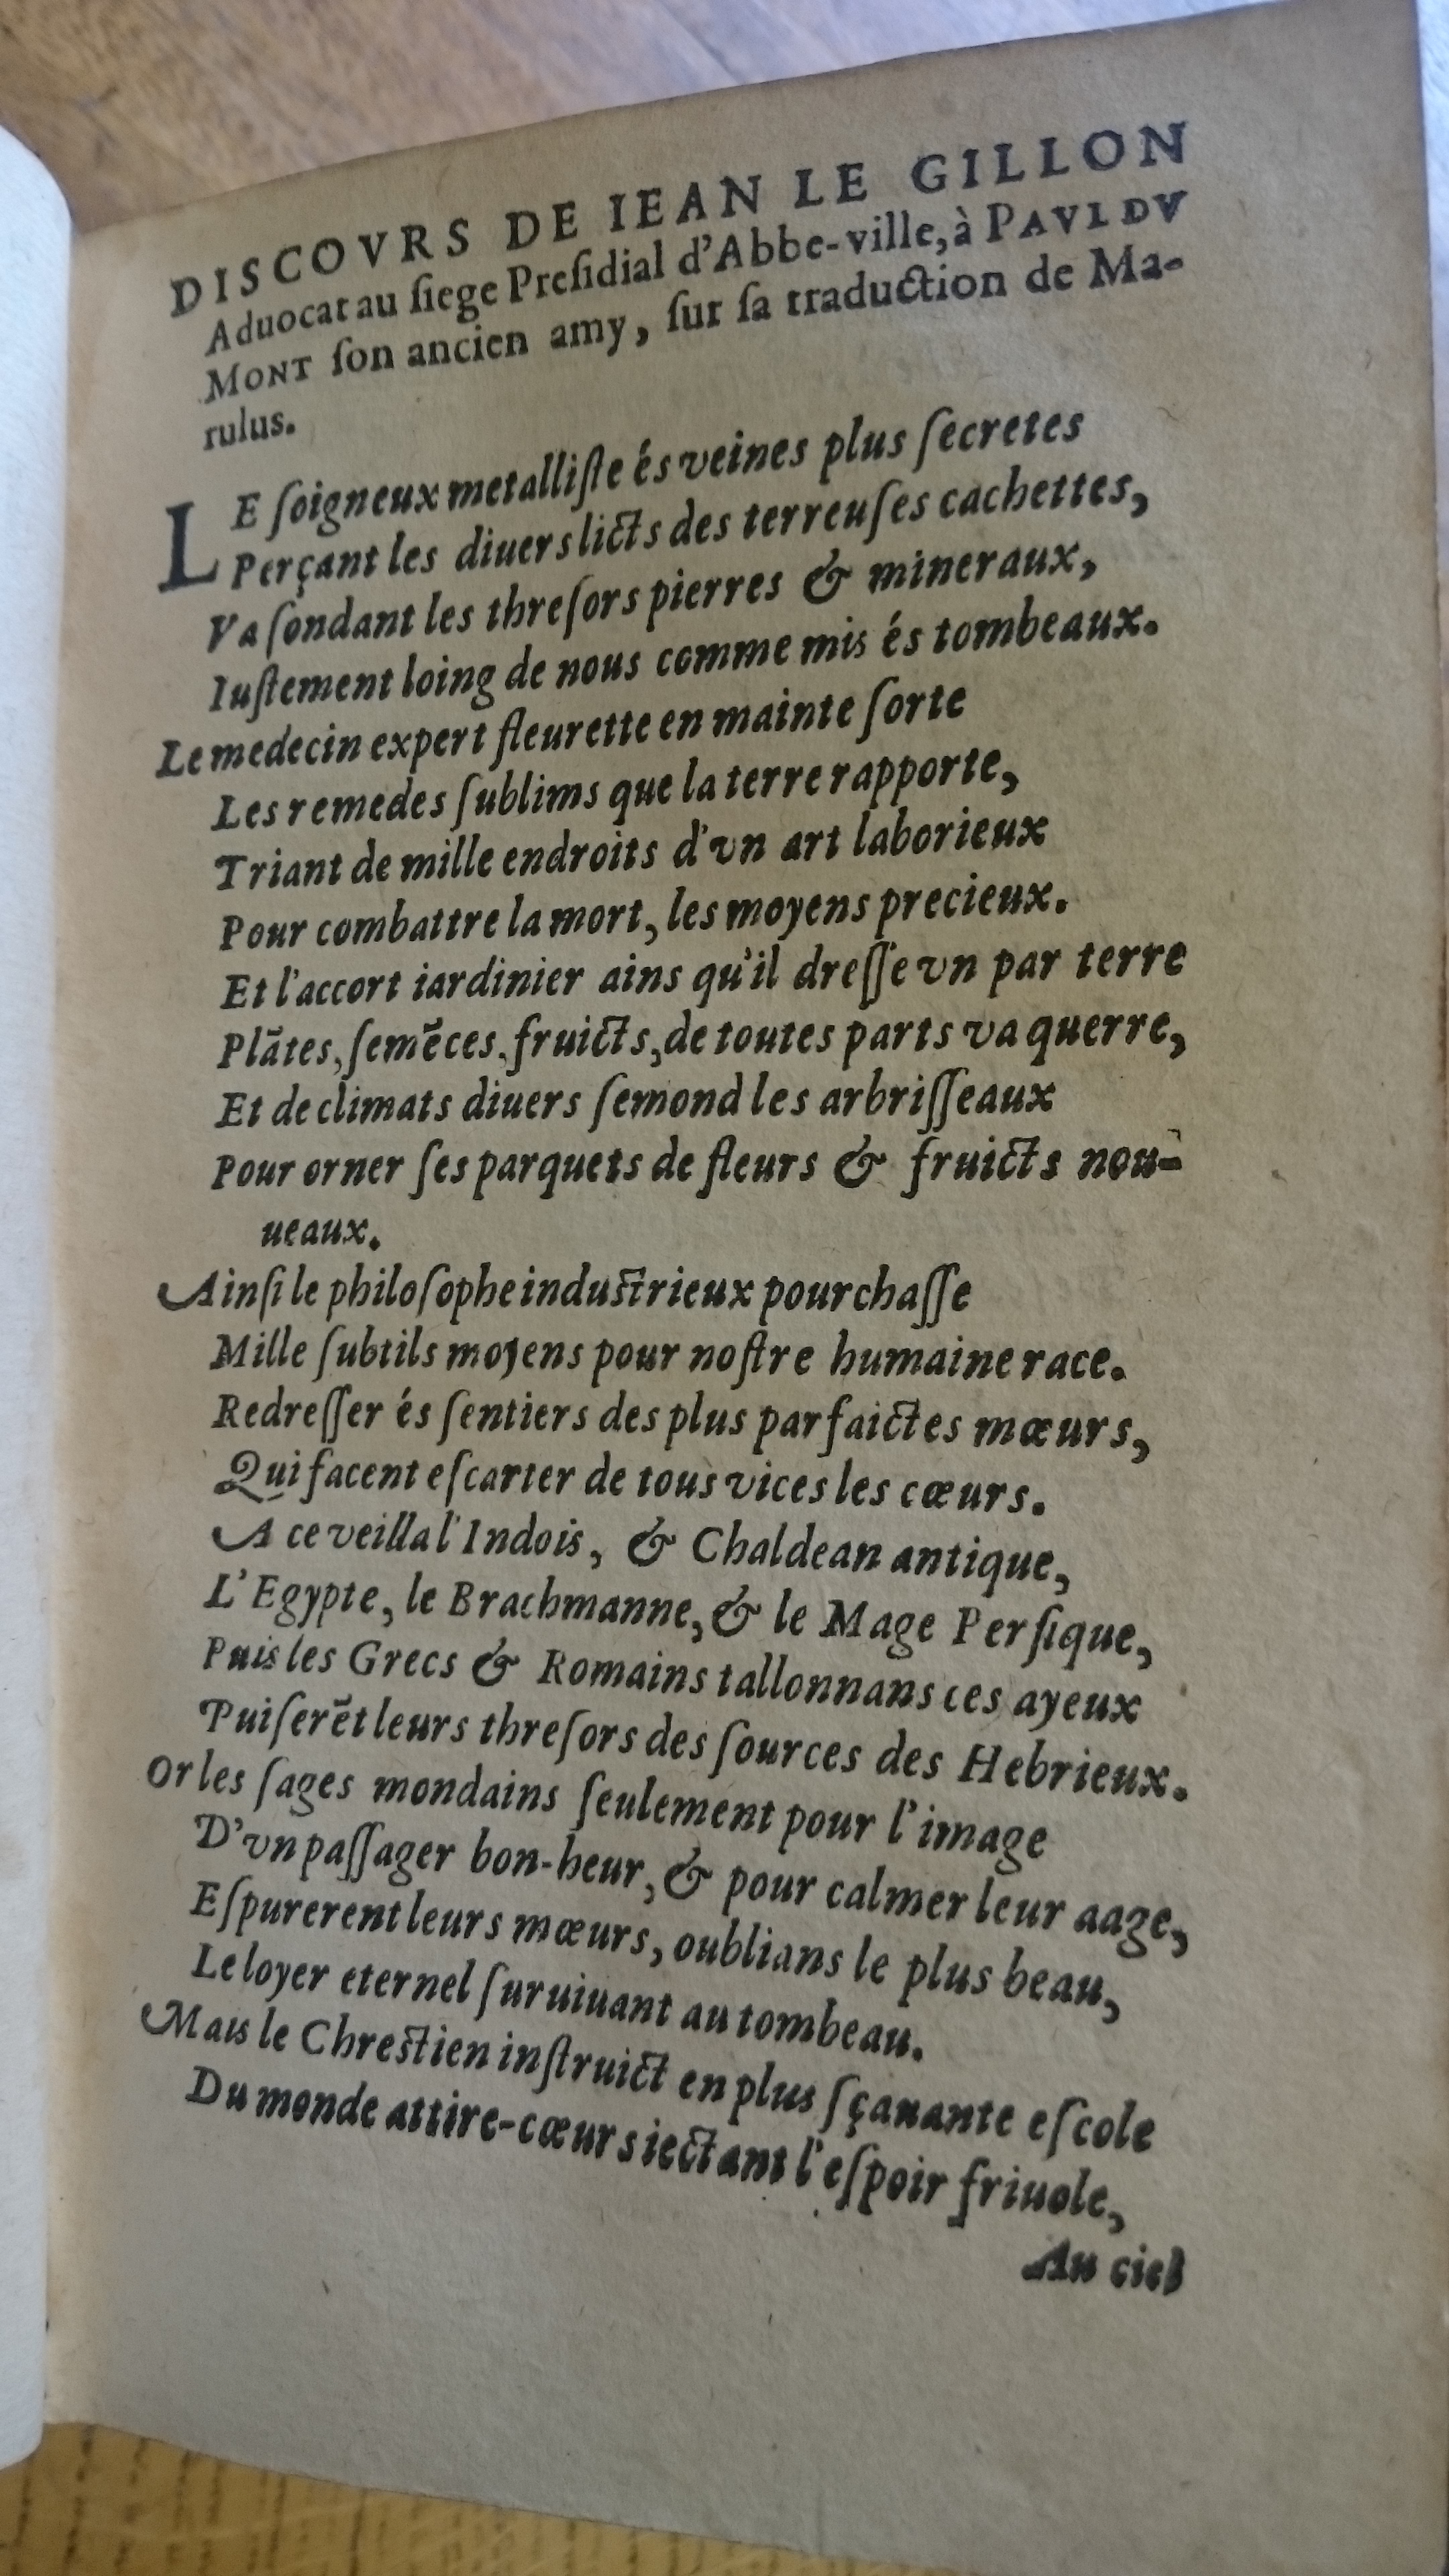 DISCOVRS DE IEAN LE GILLON
Aduocat au ſiege Preſidial d'Abbe-ville, à PAVL DV
MONT ſon ancien amy, ſur ſa traduction de Ma-
rulus.
LE ſoigneux metalliſte és veines plus ſecretes
Perçant les diuers licts des terreuſes cachettes,
Va ſondant les threſors pierres & mineraux,
Iuſtement loing de nous comme mis és tombeaux.
Le medecin expert fleurette en mainte ſorte
Les remedes ſublims que la terre rapporte,
Triant de mille endroits d'vn art laborieux
Pour combattre la mort, les moyens precieux.
Et l'accort iardinier ains qu'il dreſſe vn par terre
Plãtes, ſemẽces, fruicts, de toutes parts va querre,
Et de climats diuers ſemond les arbriſſeaux
Pour orner ſes parquets de fleurs & fruicts nou-
ueaux.
Ainſi le philoſophe induſtrieux pourchaſſe
Mille ſubtils moyens pour noſtre humaine race.
Redreſſer és ſentiers des plus parfaictes mœurs,
Qui facent eſcarter de tous vices les cœurs.
A ce veilla l'Indois, & Chaldean antique,
L'Egypte, le Brachmanne, & le Mage Perſique,
Puis les Grecs & Romains tallonnans ces ayeux
Puiſerẽt leurs threſors des ſources des Hebrieux.
Or les ſages mondains ſeulement pour l'image
D'vn paſſager bon-heur, & pour calmer leur aage,
Eſpurerent leurs mœurs, oublians le plus beau,
Le loyer eternel ſuruiuant au tombeau.
Mais le Chreſtien inſtruict en plus ſçauante eſcole
Du monde attire-cœurs iectant l'eſpoir friuole,
Au ciel